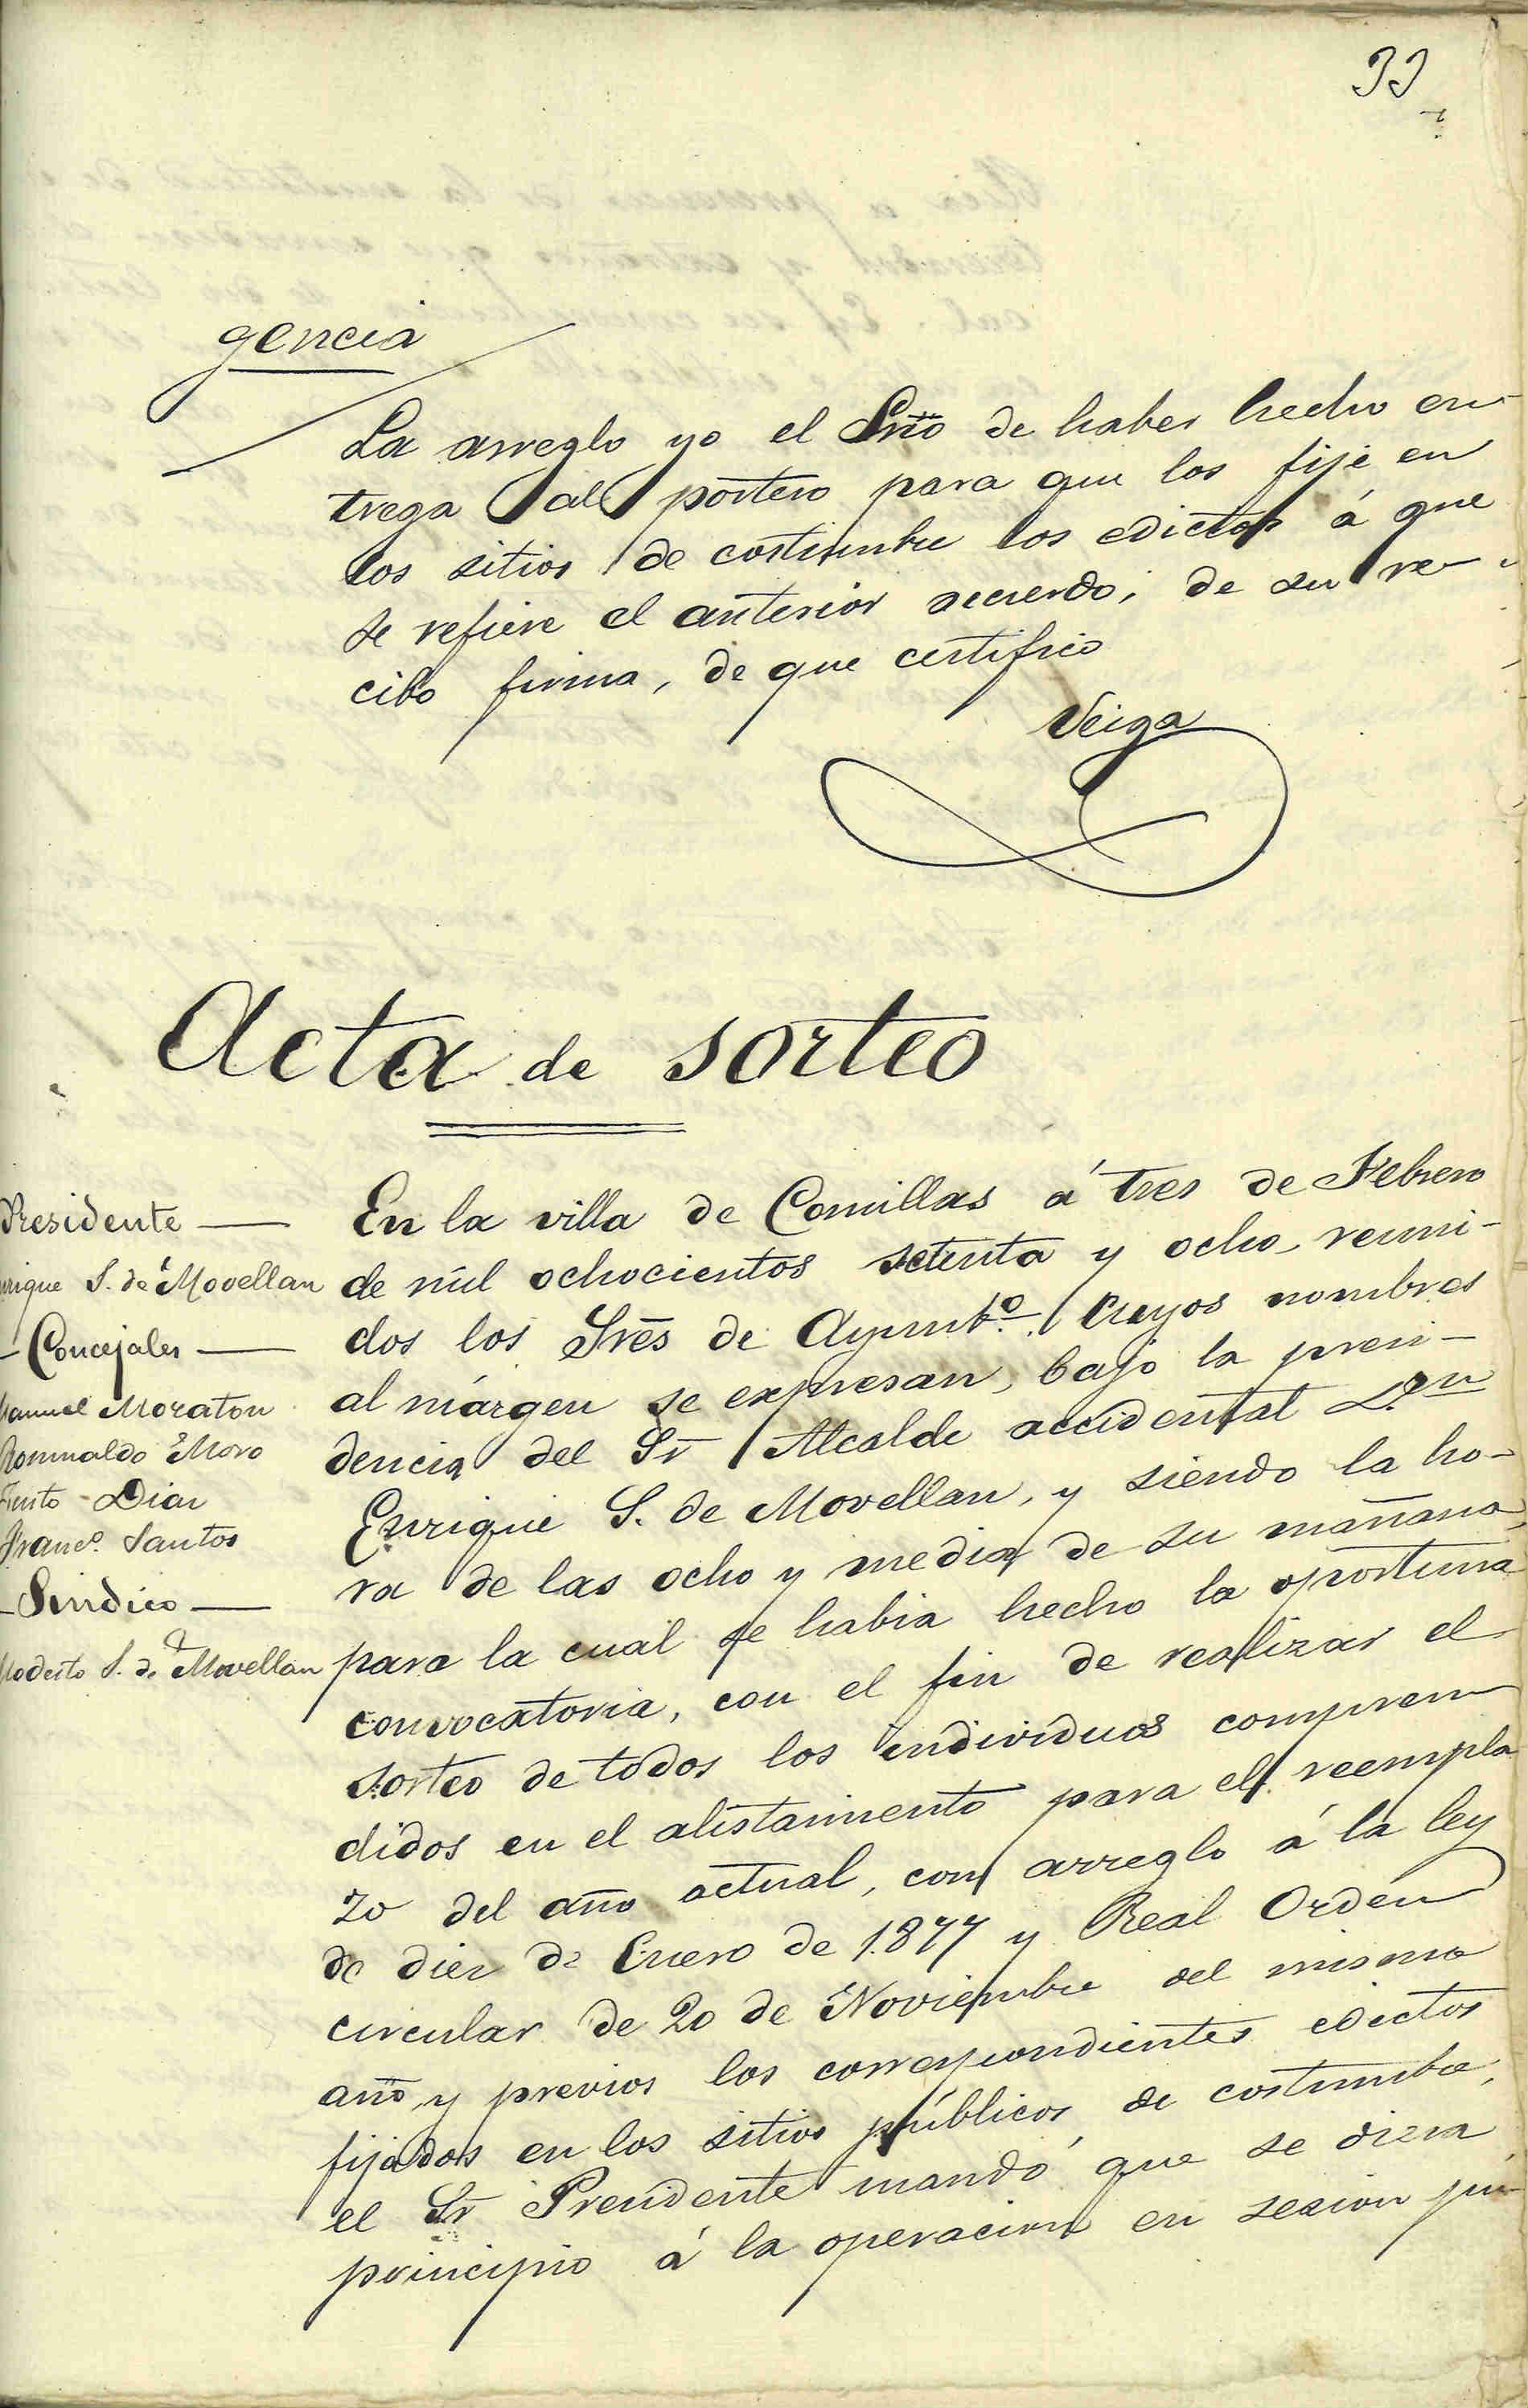 33
gencia
La arreglo yo el Srio de haber hecho en-
trega al portero para que los fije en
los sitios de costumbre los edictos á que
se refiere el anterior acuerdo; de su re-
cibo firma, de que certifico
Veiga
Acta de sorteo
Presidente
nrique S. de Movellan
Concejales
Manuel Moraton
Romualdo Moro
Tinto Diaz
Franco. Santos
Sindico
Modesto S. de Movellan
En la villa de Comillas á tres de Febrero
de mil ochocientos setenta y ocho, reuni-
dos los Sres de Ayuntto. cuyos nombres
al márgen se expresan, bajo la presi-
dencia del Sr Alcalde accidental Dn
Enrique S. de Movellan, y siendo la ho-
ra de las ocho y media de su mañana,
para la cual se habia hecho la oportuna
convocatoria, con el fin de realizar el
sorteo de todos los individuos compren
didos en el alistamiento para el reempla
zo del año actual, con arreglo á la ley
de diez de Enero de 1.877 y Real Orden
circular de 20 de Noviembre del mismo
año, y previos los correspondientes edictos
fijados en los sitios públicos de costumbre,
el Sr Presidente mandó que se diera
principio á la operacion en sesion pú-